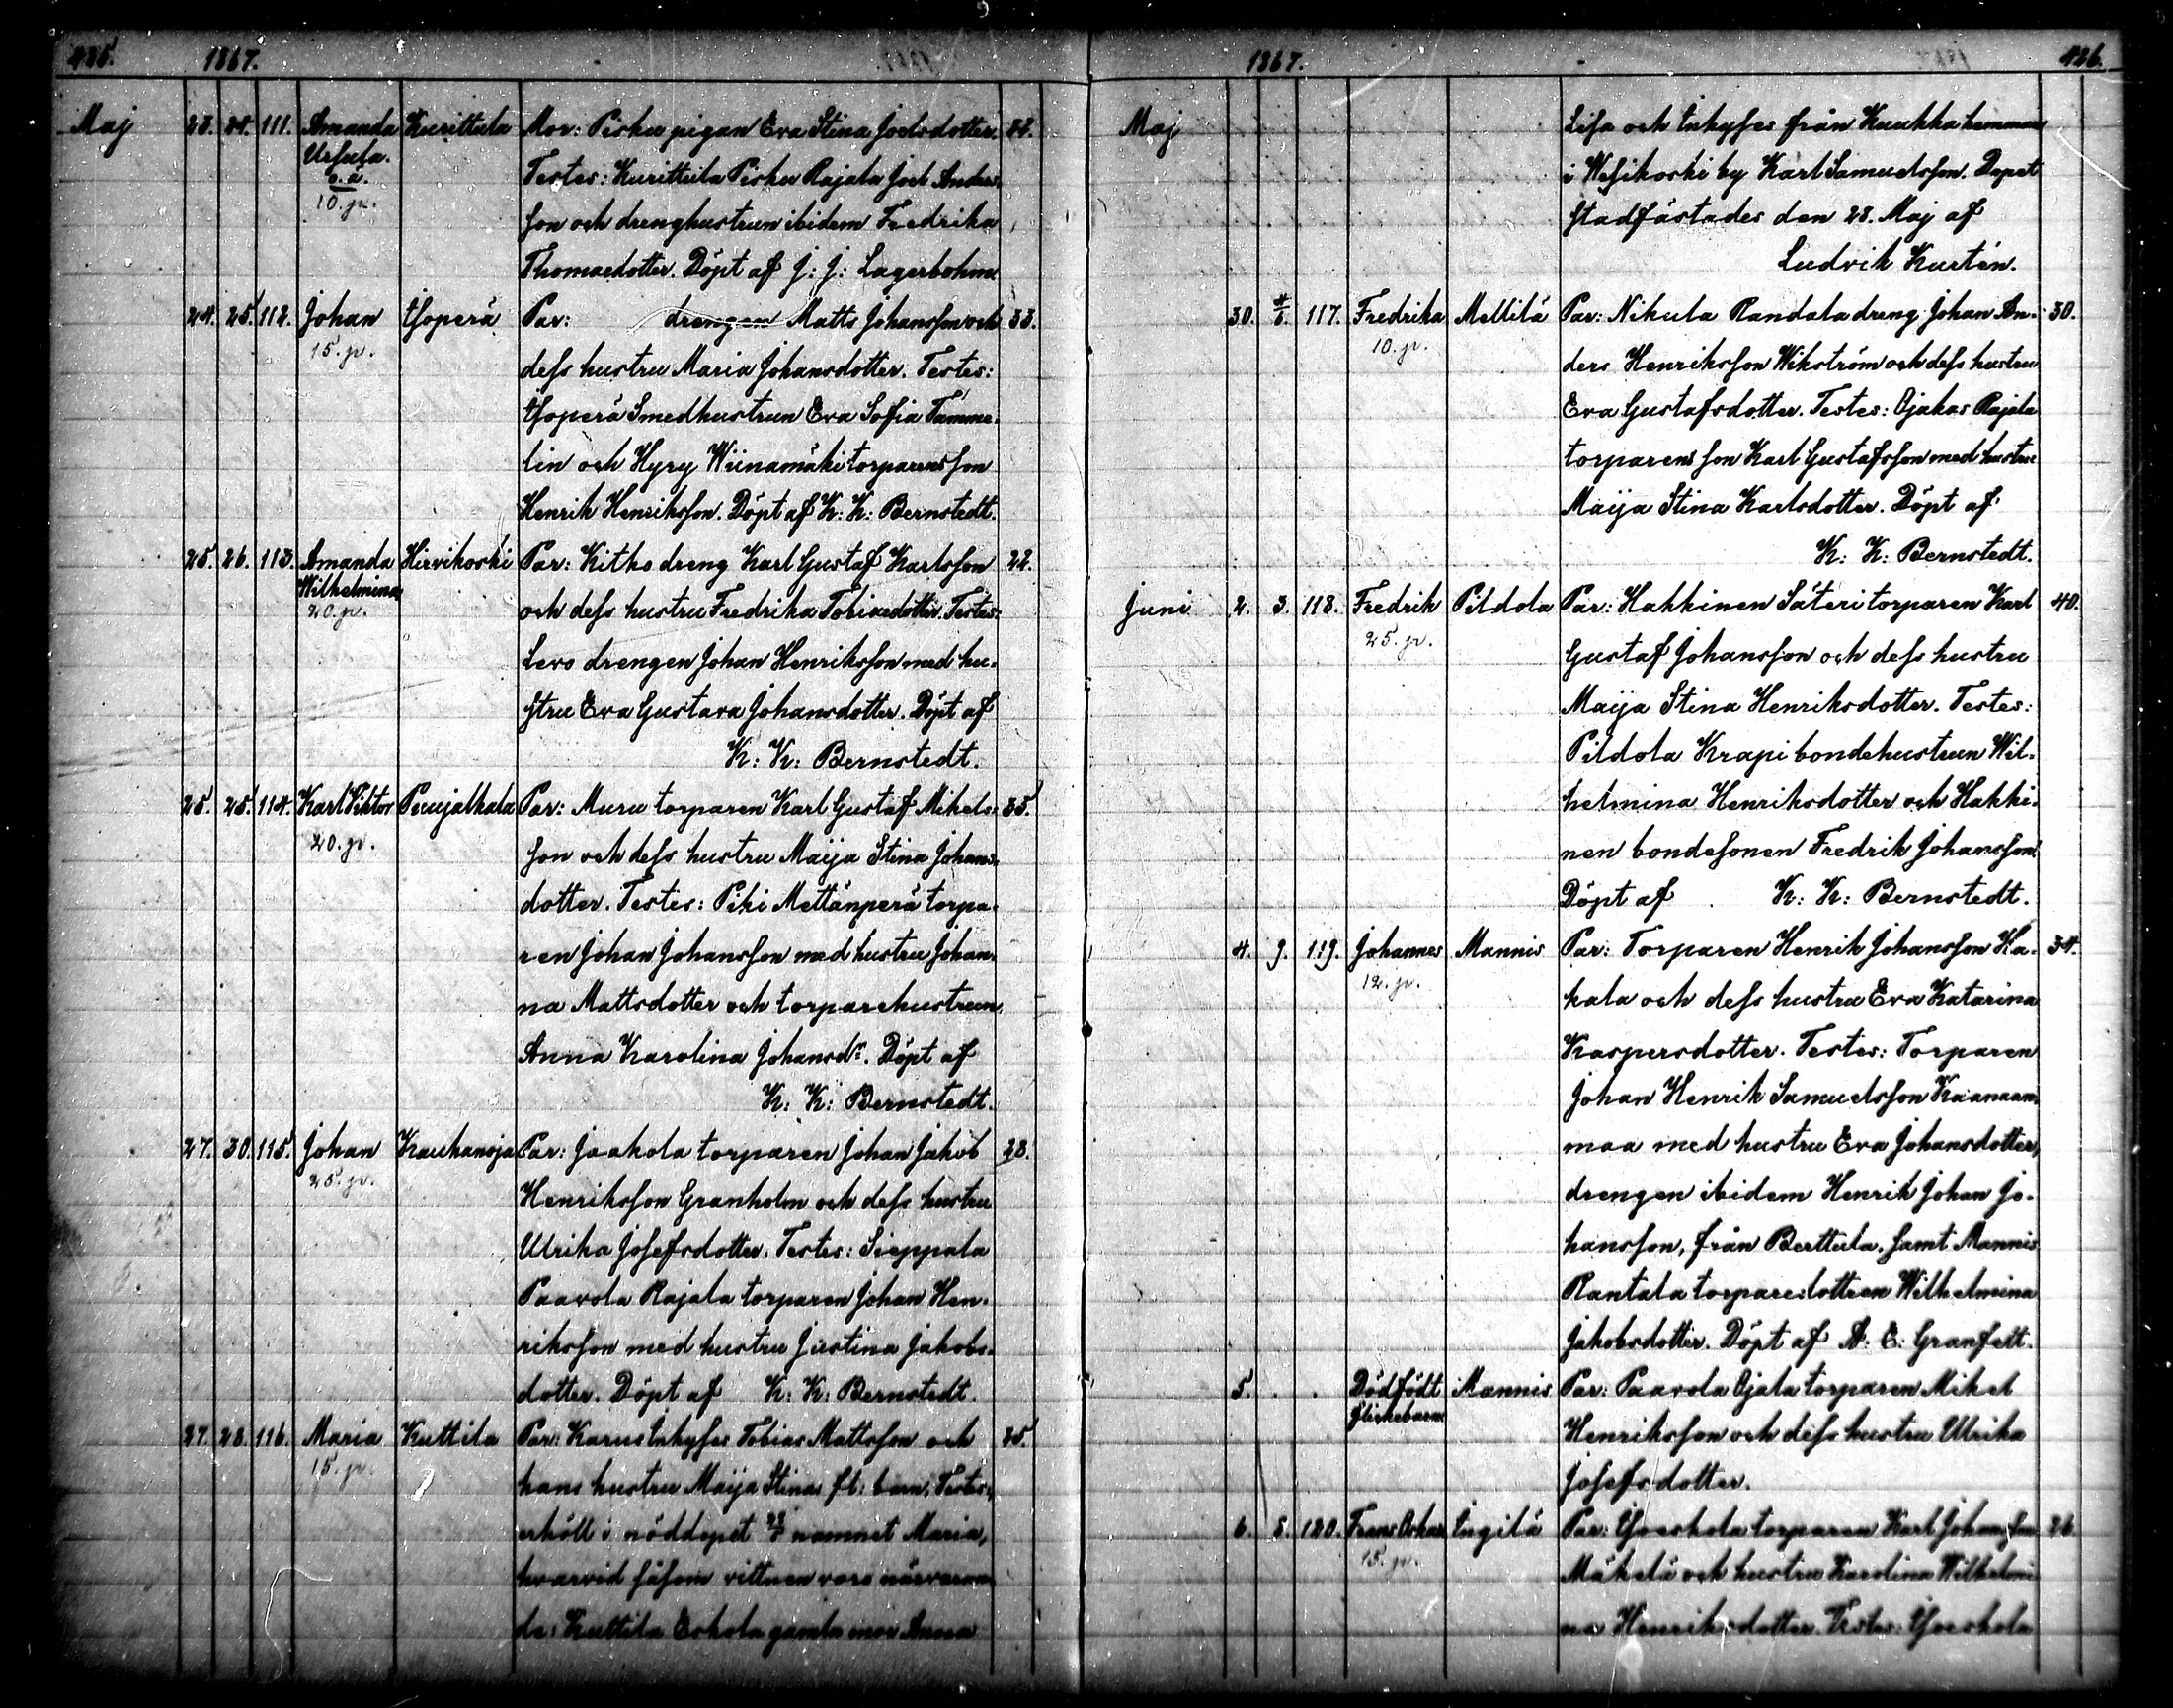 485. 1867.
Maj 23. 24. 111. Amanda Kurittula Mor: Pisku pigan Eva Stina Joelsdotter. 32.
Ursula. Testes: Kurittula Pisku Rajala Joel Anders-
o.ä. son och drenghustrun ibidem Fredrika
10. p. Thomasdotter. Döpt af J: J: Lagerbohm.
24. 25. 112. Johan Isoperä Par: drengen Matts Johansson och 33.
15. p. dess hustru Maria Johansdotter. Testes:
Isoperä Smedhustrun Eva Sofia Tamme-
lin och Hyry Wiinamäki torparens son
Henrik Henriksson. Döpt af K: K: Bernstedt.
25. 26. 113. Amanda Hirvikoski Par: Kitko dreng Karl Gustaf Karlsson 22.
Wilhelmina och dess hustru Fredrika Tobiaedotter. Testes:
20. p. Levo drengen Johan Henriksson med hu-
stru Eva Gustava Johansdotter. Döpt af
K: K: Bernstedt.
25. 25. 114. Karl Viktor Peujalkala Par: Muru torparen Karl Gustaf Mikels- 35.
20. p. son och dess hustru Maija Stina Johans-
dotter. Testes: Piki Mettänperä torpa-
ren Johan Johansson med hustru Johan-
na Mattsdotter och torparehustrun
Anna Karolina Johansdr. Döpt af
K: K: Bernstedt.
27. 30. 115. Johan Kauhanoja Par: Jaakola torparen Johan Jakob 28.
25. p. Henriksson Granholm och dess hustru
Ulrika Josefsdotter. Testes: Sieppala
Paavola Rajala torparen Johan Hen-
riksson med hustru Justina Jakobs-
dotter. Döpt af K: K: Bernstedt.
27. 28. 116. Maria Kuttila Par: Karus Inhyses Tobias Mattsson och 25.
15. p. hans hustru Maija Stinas fl: barn, Testes:
erhöll i nöddopet 28/5 namnet Maria,
hvarvid såsom vittnen voro närvaran-
de: Kuttila Eskola gamla mor Anna
1867. 486.
Maj Lisa och Inhyses från Kuukka hemman
i Wesikoski by Karl Samuelsson. Dopet
stadfästades den 28. Maj af
Ludvik Kurtén.
30. 4/6. 117. Fredrika Mellilä Par: Nikula Randala dreng Johan An- 30.
10. p. ders Henriksson Wikström och dess hustru
Eva Gustafsdotter. Testes: Ojakas Rajala
torparens son Karl Gustafsson med hustru
Maija Stina Karlsdotter. Döpt af
K: K: Bernstedt.
Juni 2. 3. 118. Fredrik Pildola Par: Hakkinen Säteri torparen Karl 40.
25. p. Gustaf Johansson och dess hustru
Maija Stina Henriksdotter. Testes:
Pildola Krapi bondehustrun Wil-
helmina Henriksdotter och Hakki-
nen bondesonen Fredrik Johansson.
Döpt af K: K: Bernstedt.
4. 9. 119. Johannes Mannis Par: Torparen Henrik Johansson Ha- 34.
12. p. kala och dess hustru Eva Katarina
Kaspersdotter. Testes: Torparen
Johan Henrik Samuelsson Kaanaan-
maa med hustru Eva Johansdotter,
drengen ibidem Henrik Johan Jo-
hansson, från Berttula, samt Mannis
Rantala torparedottren Wilhelmina
Jakobsdotter. Döpt af A: E: Granfelt.
5. . . Dödfödt Mannis Par: Paavola Ojala torparen Mikel
flickebarn Henriksson och dess hustru Ulrika
Josefsdotter.
6. 5. 120. Frans Oskar Ingilä Par: torparen Karl Johansson 26.
15. p. Mäkelä och hustru Karolina Wilhelmi-
na Henriksdotter. Testes: